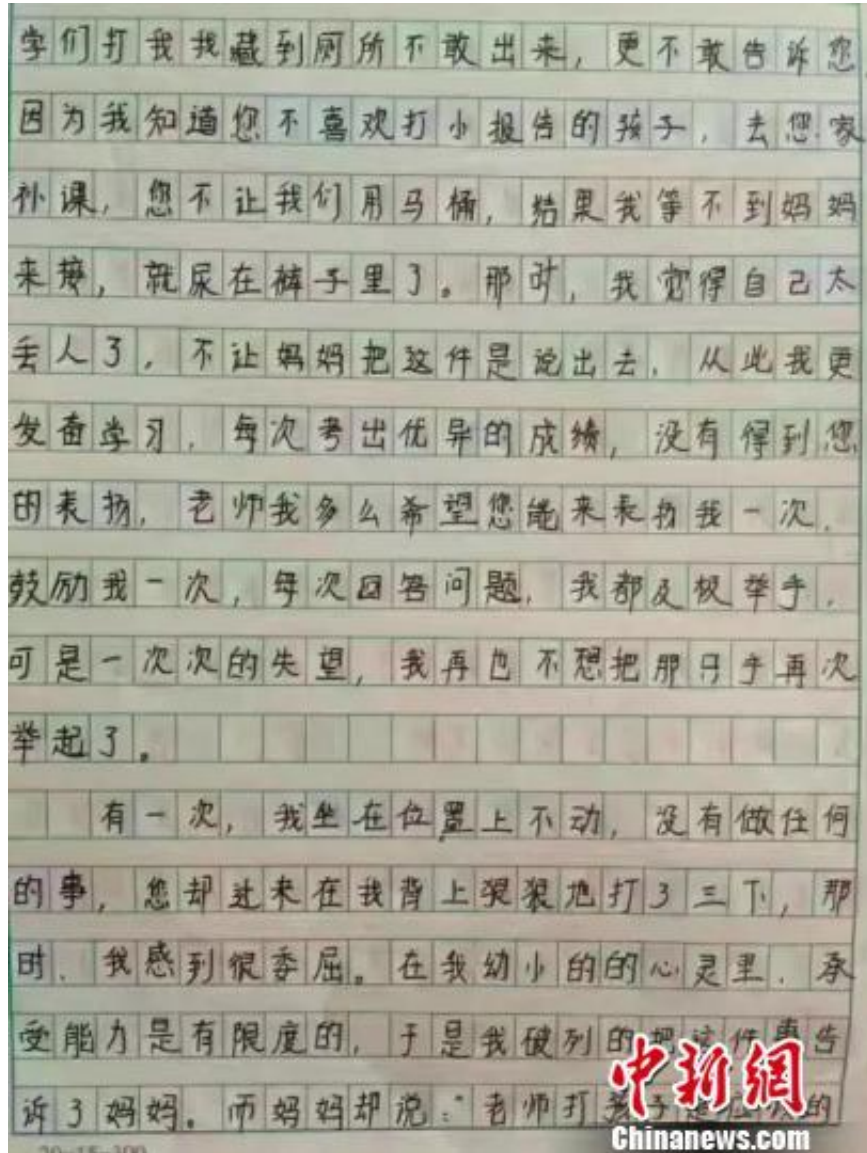 学们打我我藏到厕所不敢出来，更不敢告诉您
因为我知道您不喜欢打小报告的孩子，去您家
补课，您不让我们用马桶，结果我等不到妈妈
来接，就尿在裤子里了。那时，我觉得自己太
丢人了，不让妈妈把这件是说出去，从此我更
发奋学习，每次考出优异的成绩，没有得到您
的表扬，老师我多么希望您能来表扬我一次，
鼓励我一次，每次回答问题，我都及极举手，
可是一次次的失望，我再也不想把那只手再次
举起了。
有一次，我坐在位置上不动，没有做任何
的事，您却过来在我背上狠狠地打了三下，那
时，我感到很委屈。在我幼小的的心灵里，承
受能力是有限度的，于是我破列的把这件事告
诉了妈妈。而妈妈却说：“老师打孩子是的
中新網
Chinanews.com
20×15=300